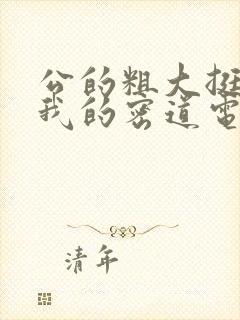 公的粗大挺
我的密道电
清年